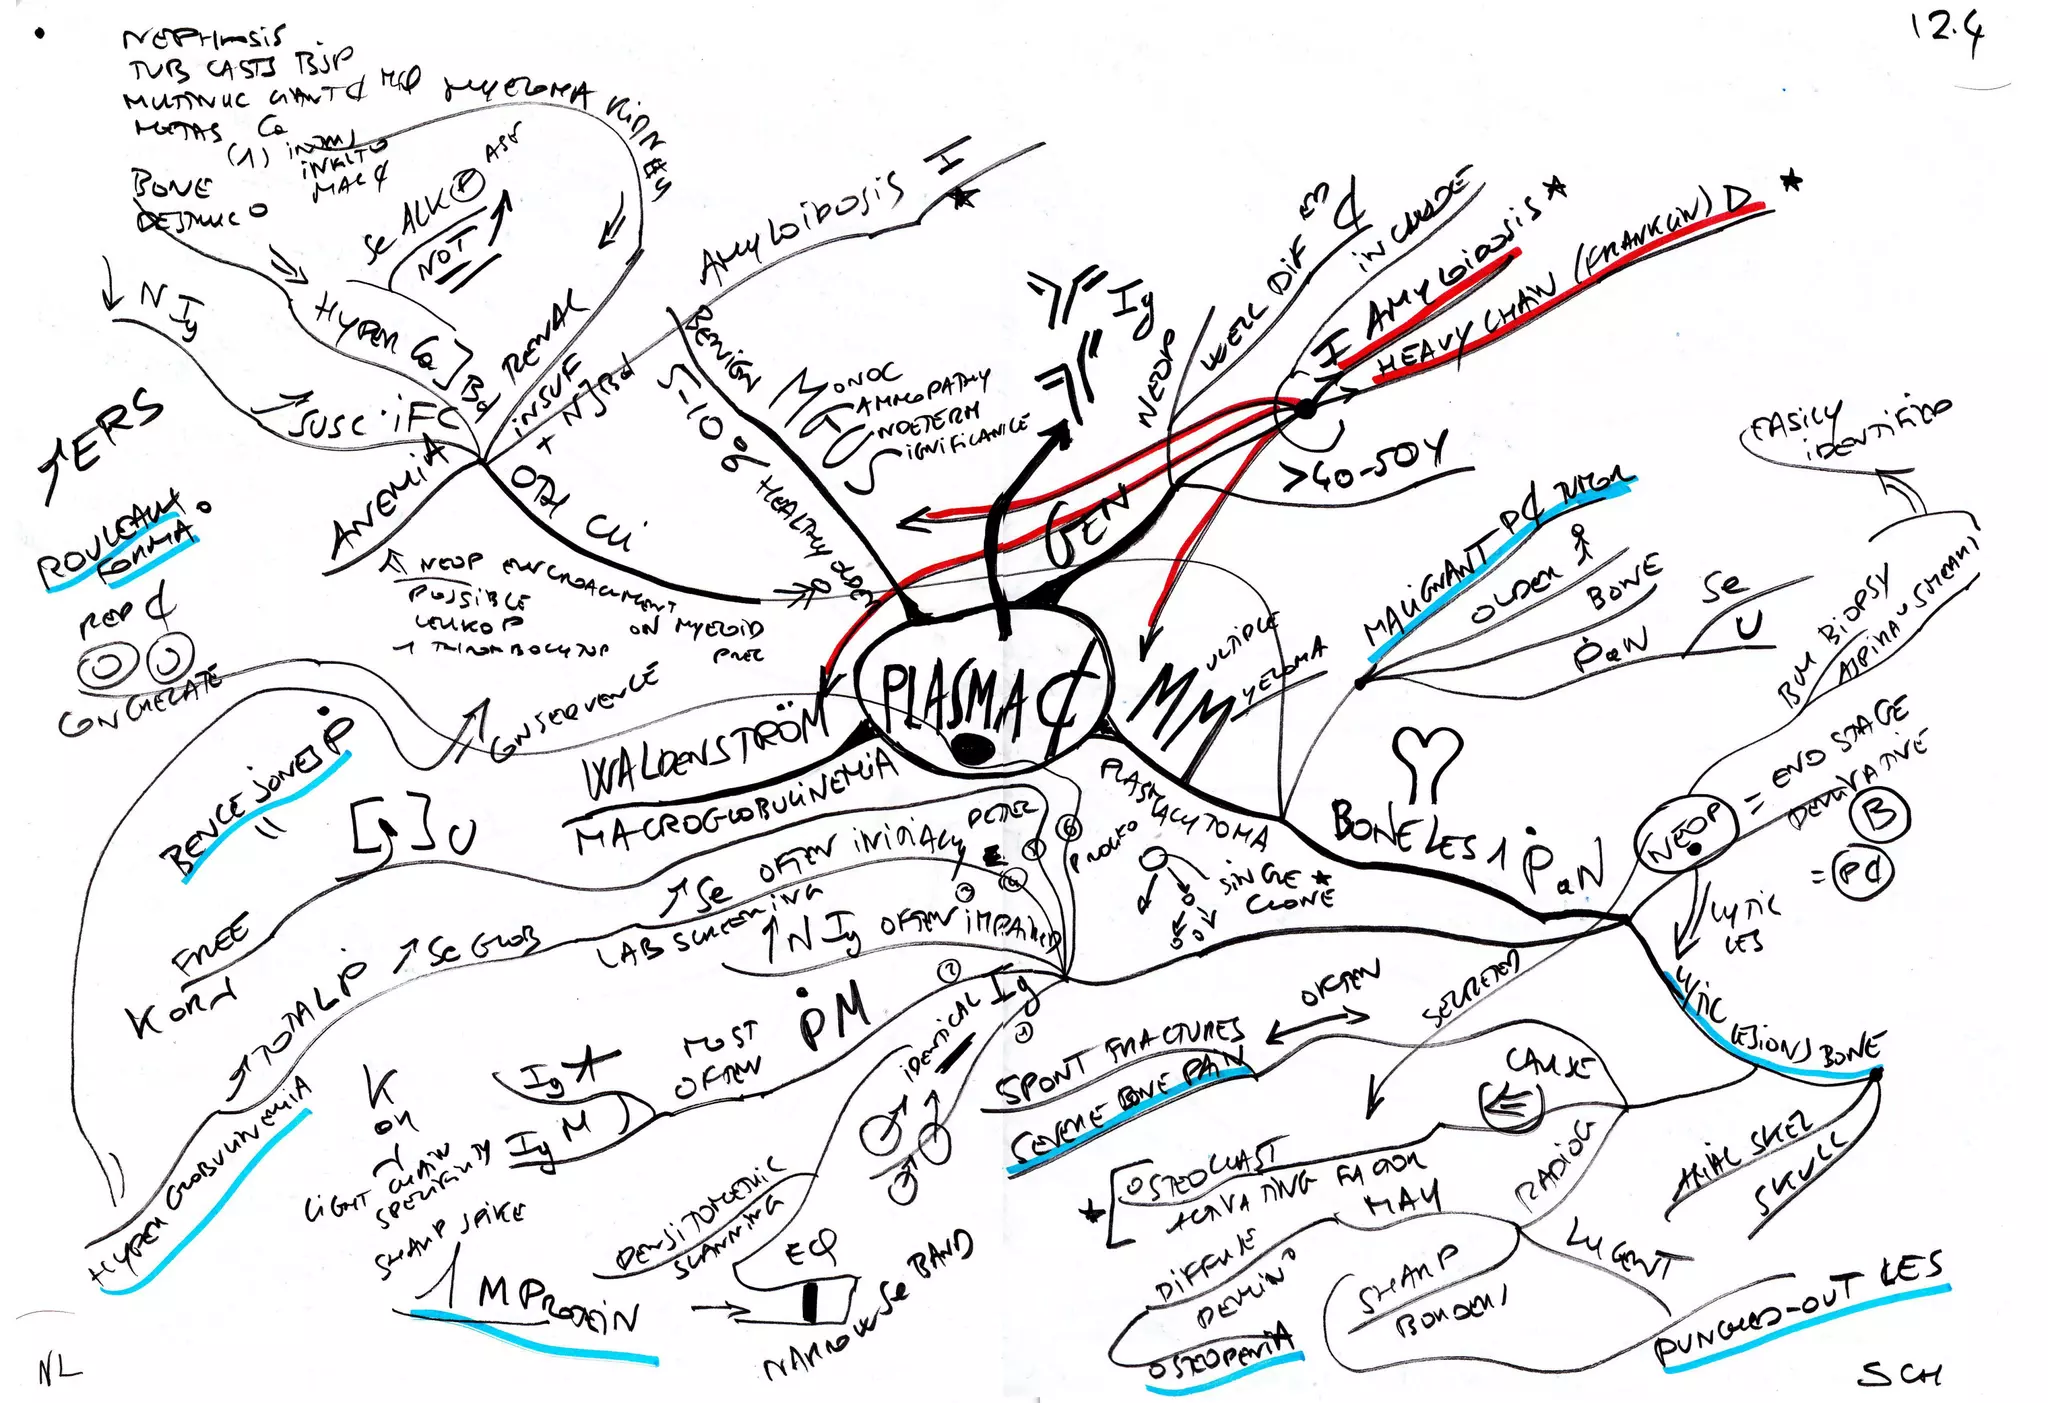 12.4
NEPHROSIS
TUB CASTS BJP
MULTINUC GIANT ₵ MØ
METAS Ca
(1) INTERST
INFILTR
MAL ₵
MYELOMA KIDNEY
BONE
DESTRUC
Se ALK P
NOT
HYPER Ca
↓ N Ig
↗ SUSC. iFC
RENAL
INSUF
+ NJBd
ANEMIA
OTH Cli
↗ ERS
ROULEAUX
FORMA
RED ₵
CONGLERATE
NEOP ENCROACHMENT
ON MYELOID
PREC
POSSIBLE
LEUKOP
THROMBOCYTOP
CONSEQUENCE
AMYLOIDOSIS I
BENIGN
5-10% HEALTHY OLDER
MONOC
GAMMOPATHY
UNDETERM
SIGNIFICANCE
Ig
GEN
NEOP
WELL DIF ₵
INCLUDE
I AMYLOIDOSIS
HEAVY CHAIN (FRANKLIN) D
>40-50Y
PLASMA ₵
MULTIPLE
MYELOMA
PLASMACYTOMA
MALIGNANT P₵ TUMOR
OLDER
BONE
PaN
Se
U
EASILY
IDENTIFIED
BM BIOPSY
ASPIRAT SMEARS
NEOP
= END STAGE
DERIVATIVE
B
= P₵
BONE LES 1 PaN
LYTIC
LES
LYTIC LESIONS BONE
AXIAL SKEL
SKULL
SINGLE
CLONE
SECRETED
OFTEN
SPONT FRACTURES
SEVERE BONE PAIN
CAUSE
OSTEOCLAST
ACTIVATING FACTOR
RADIOG
MAY
DIFFUSE
DEMIN
OSTEOPENIA
SHARP
BORDERS
LUCENT
PUNCHED-OUT LES
WALDENSTRÖM
MACROGLOBULINEMIA
BENCE JONES P
[ ] U
FREE
K OR λ
↗ Se OFTEN INITIALLY
LAB SCREENING
↗ TOTAL P ↗ Se GLOB
HYPER GLOBULINEMIA
N Ig OFTEN IMPAIRED
IDENTICAL Ig
PM
MOST
OFTEN
Ig
Ig M
K
OR
λ
LIGHT CHAIN
SPECIFICITY
SHARP SPIKE
M PROTEIN
DENSITOMETRIC
SCANNING
EØ
NARROW Se BAND
NL
SCH